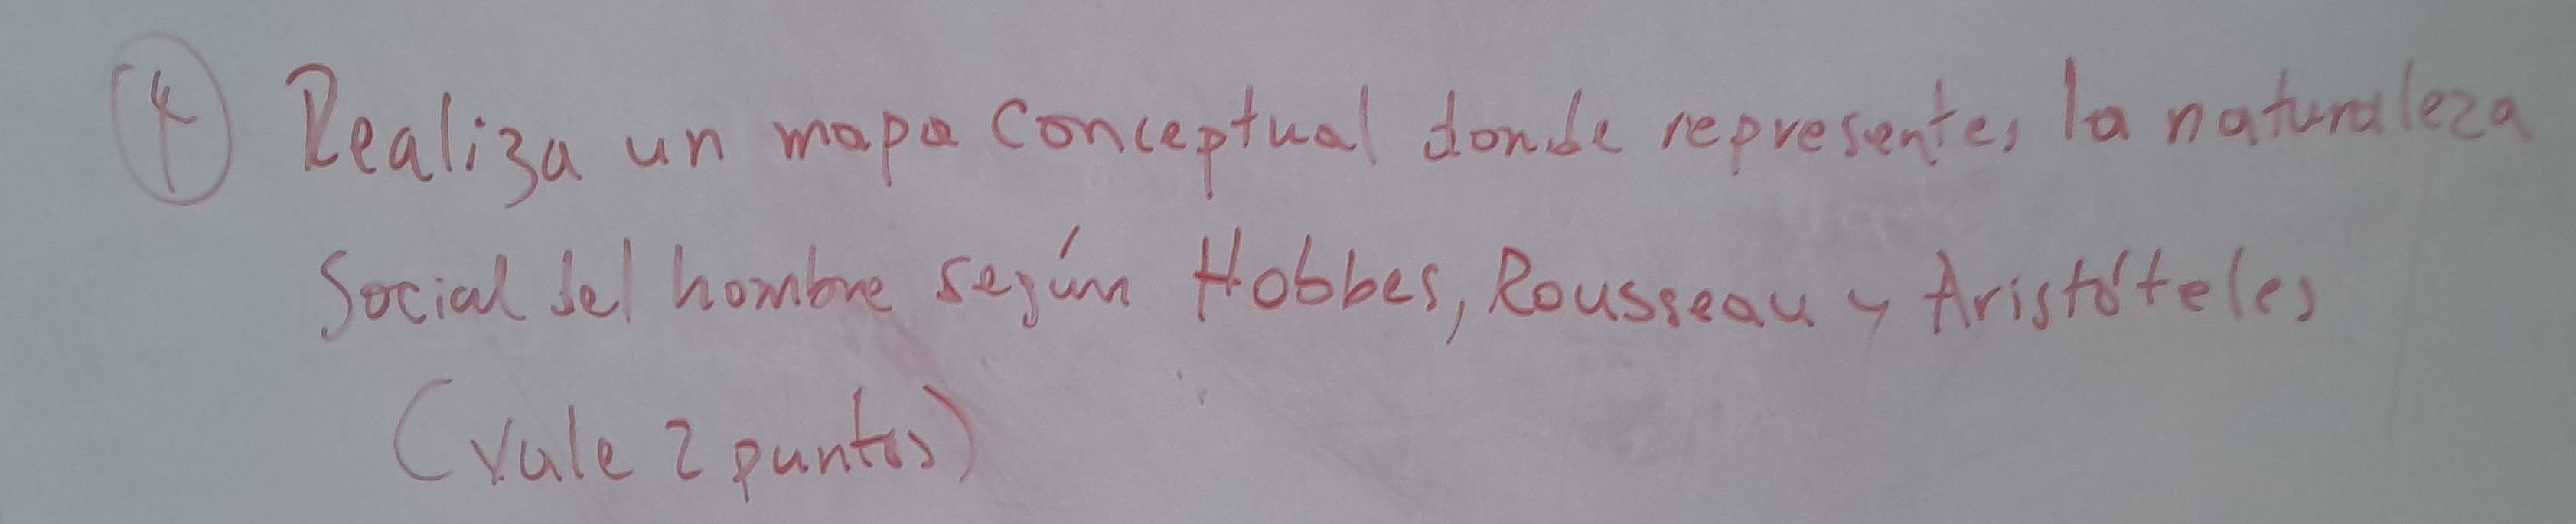 4 Realiza un mapa conceptual donde representes la naturaleza
Social del hombre según Hobbes, Rousseau y Aristóteles
(Vale 2 puntos)